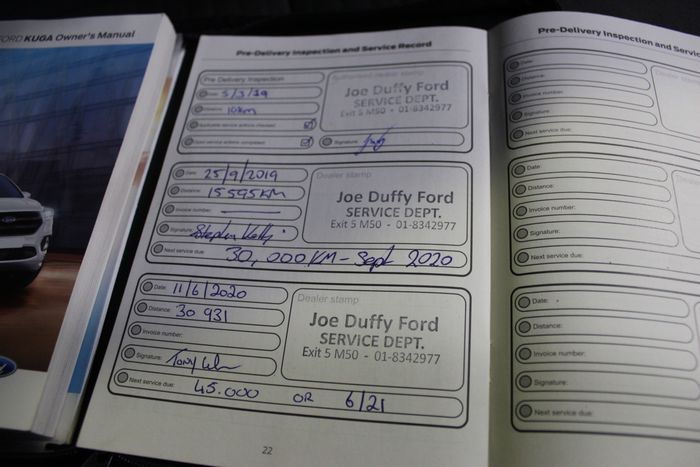 FORD KUGA Owner's Manual
Pre-Delivery Inspection and Service Record
Pre Delivery Inspection
Date: 5/3/19
Distance: 10km
Applicable service actions checked
Open service actions completed
Authorised dealer stamp
Joe Duffy Ford
SERVICE DEPT.
Exit 5 M50 - 01-8342977
Signature:
Date: 25/9/2019
Distance: 15595KM
Invoice number:
Signature: Stephen Kelly
Next service due: 30,000KM - Sept 2020
Dealer stamp
Joe Duffy Ford
SERVICE DEPT.
Exit 5 M50 - 01-8342977
Date: 11/6/2020
Distance: 30 931
Invoice number:
Signature: Tony
Next service due: 45.000 OR 6/21
Dealer stamp
Joe Duffy Ford
SERVICE DEPT.
Exit 5 M50 - 01-8342977
22
Pre-Delivery Inspection and Servic
Date:
Distance:
Invoice number:
Signature:
Next service due:
Dealer
Date:
Distance:
Invoice number:
Signature:
Next service due:
Date:
Distance:
Invoice number:
Signature:
Next service due: